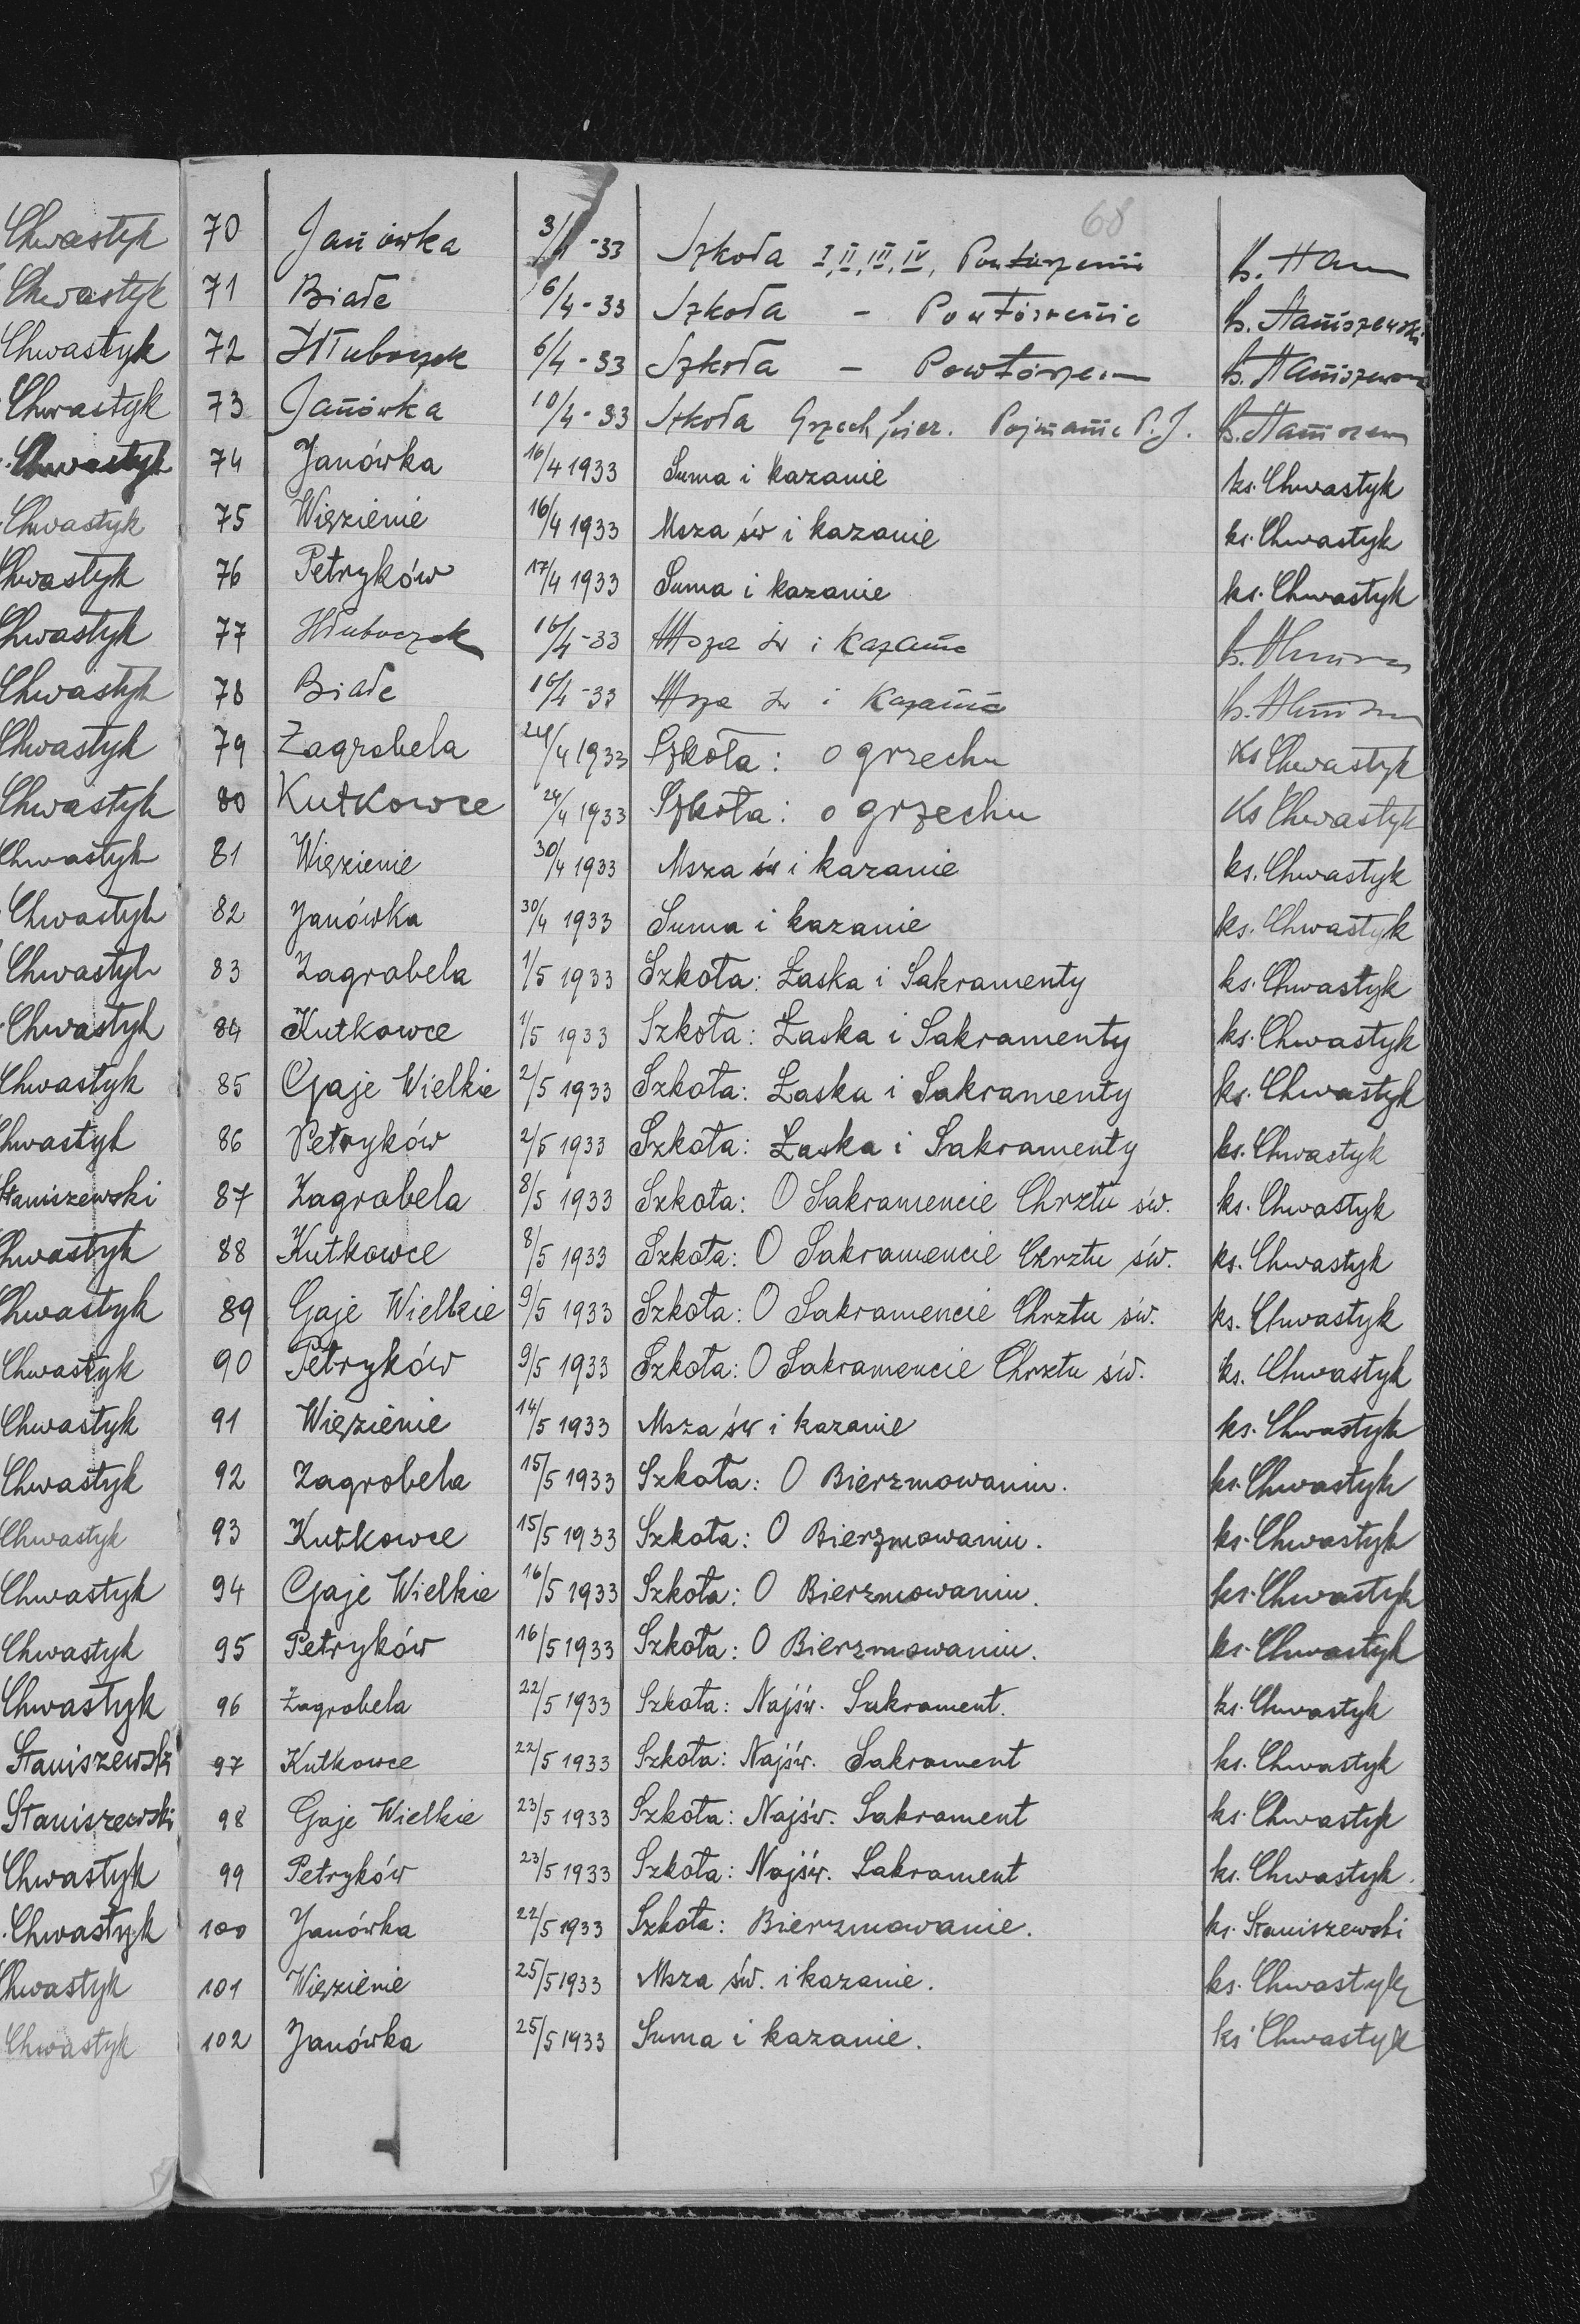 68
Chwastyk 70 Janówka 3/4 -33 Szkoła I, II, III, IV,
Chwastyk 71 Białe 6/4 - 33 Szkoła - Powtórzenie ks. Staniszewski
Chwastyk 72 Hłuboczek 6/4 - 33 Szkoła -
Chwastyk 73 Janówka 10/4 - 33 Szkoła Grzech pier. Pojmanie P. J.
Chwastyk 74 Janówka 16/4 1933 Suma i kazanie ks. Chwastyk
Chwastyk 75 Więzienie 16/4 1933 Msza św i kazanie ks. Chwastyk
Chwastyk 76 Petryków 17/4 1933 Suma i kazanie ks. Chwastyk
Chwastyk 77 Hłuboczek 16/4 -33 Msza św i Kazanie
Chwastyk 78 Białe 16/4 -33 Msza św i Kazanie
Chwastyk 79 Zagrobela 24/4 1933 Szkoła: o grzechu Ks Chwastyk
Chwastyk 80 Kutkowce 24/4 1933 Szkoła: o grzechu Ks Chwastyk
Chwastyk 81 Więzienie 30/4 1933 Msza św i kazanie ks. Chwastyk
Chwastyk 82 Janówka 30/4 1933 Suma i kazanie ks. Chwastyk
Chwastyk 83 Zagrobela 1/5 1933 Szkoła: Łaska i Sakramenty ks. Chwastyk
Chwastyk 84 Kutkowce 1/5 1933 Szkoła: Łaska i Sakramenty ks. Chwastyk
Chwastyk 85 Gaje Wielkie 2/5 1933 Szkoła: Łaska i Sakramenty ks. Chwastyk
Chwastyk 86 Petryków 2/5 1933 Szkoła: Łaska i Sakramenty ks. Chwastyk
Staniszewski 87 Zagrobela 8/5 1933 Szkoła: O Sakramencie Chrztu św. ks. Chwastyk
Chwastyk 88 Kutkowce 8/5 1933 Szkoła: O Sakramencie Chrztu św. ks. Chwastyk
Chwastyk 89 Gaje Wielkie 9/5 1933 Szkoła: O Sakramencie Chrztu św. ks. Chwastyk
Chwastyk 90 Petryków 9/5 1933 Szkoła: O Sakramencie Chrztu św. ks. Chwastyk
Chwastyk 91 Więzienie 14/5 1933 Msza św i kazanie ks. Chwastyk
Chwastyk 92 Zagrobela 15/5 1933 Szkoła: O Bierzmowaniu. ks. Chwastyk
Chwastyk 93 Kutkowce 15/5 1933 Szkoła: O Bierzmowaniu. ks. Chwastyk
Chwastyk 94 Gaje Wielkie 16/5 1933 Szkoła: O Bierzmowaniu. ks. Chwastyk
Chwastyk 95 Petryków 16/5 1933 Szkoła: O Bierzmowaniu. ks. Chwastyk
Chwastyk 96 Zagrobela 22/5 1933 Szkoła: Najśw. Sakrament. ks. Chwastyk
Staniszewski 97 Kutkowce 22/5 1933 Szkoła: Najśw. Sakrament ks. Chwastyk
Staniszewski 98 Gaje Wielkie 23/5 1933 Szkoła: Najśw. Sakrament ks. Chwastyk
Chwastyk 99 Petryków 23/5 1933 Szkoła: Najśw. Sakrament ks. Chwastyk.
Chwastyk 100 Janówka 22/5 1933 Szkoła: Bierzmowanie. ks. Staniszewski
Chwastyk 101 Więzienie 25/5 1933 Msza św. i kazanie. ks. Chwastyk
Chwastyk 102 Janówka 25/5 1933 Suma i kazanie. ks Chwastyk